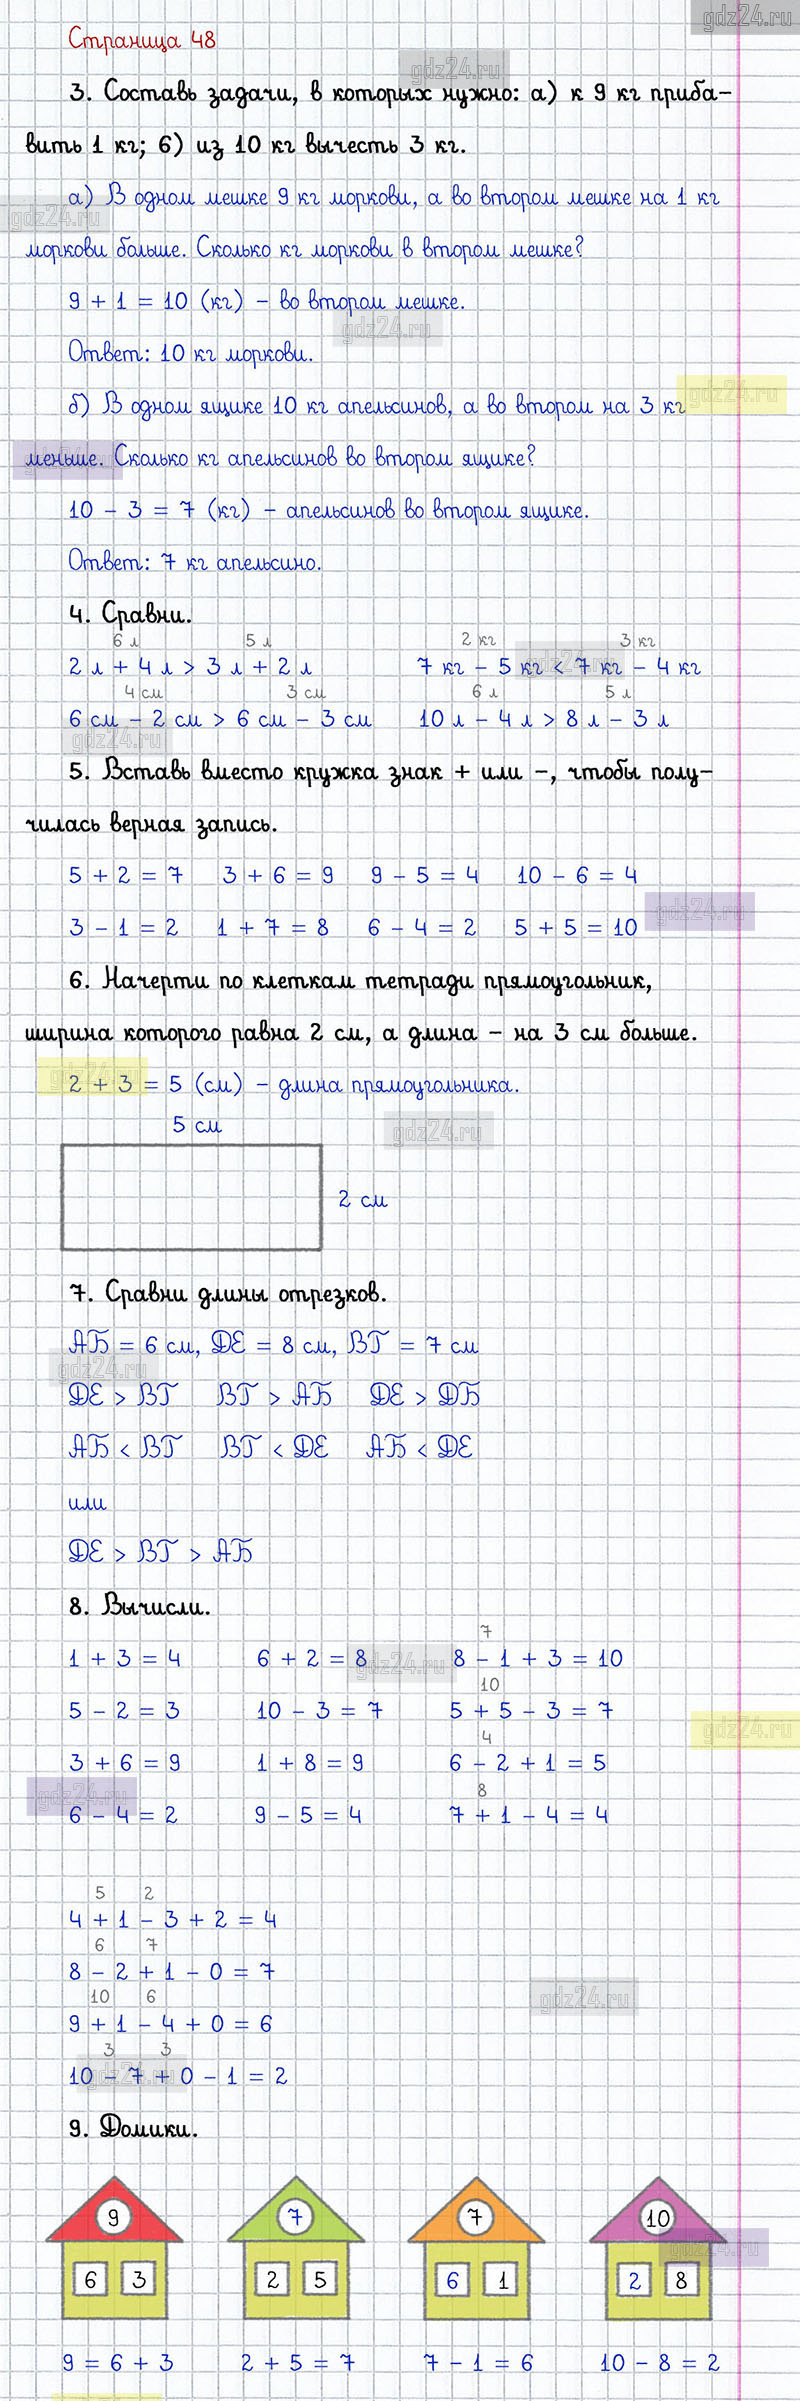 gdz24.ru
Страница 48
gdz24.ru
3. Составь задачи, в которых нужно: а) к 9 кг приба-
вить 1 кг; б) из 10 кг вычесть 3 кг.
а) В одном мешке 9 кг моркови, а во втором мешке на 1 кг
gdz24.ru
моркови больше. Сколько кг моркови в втором мешке?
9 + 1 = 10 (кг) – во втором мешке.
gdz24.ru
Ответ: 10 кг моркови.
gdz24.ru
б) В одном ящике 10 кг апельсинов, а во втором на 3 кг
gdz24.ru
меньше. Сколько кг апельсинов во втором ящике?
10 – 3 = 7 (кг) – апельсинов во втором ящике.
Ответ: 7 кг апельсино.
4. Сравни.
6 л 5 л 2 кг 3 кг
2 л + 4 л > 3 л + 2 л 7 кг – 5 кг < 7 кг – 4 кг
gdz24.ru
4 см 3 см 6 л 5 л
6 см – 2 см > 6 см – 3 см 10 л – 4 л > 8 л – 3 л
gdz24.ru
5. Вставь вместо кружка знак + или –, чтобы полу-
чилась верная запись.
5 + 2 = 7 3 + 6 = 9 9 – 5 = 4 10 – 6 = 4
gdz24.ru
3 – 1 = 2 1 + 7 = 8 6 – 4 = 2 5 + 5 = 10
6. Начерти по клеткам тетради прямоугольник,
ширина которого равна 2 см, а длина – на 3 см больше.
gdz24.ru
2 + 3 = 5 (см) – длина прямоугольника.
5 см
gdz24.ru
2 см
7. Сравни длины отрезков.
АБ = 6 см, ДЕ = 8 см, ВГ = 7 см
gdz24.ru
ДЕ > ВГ ВГ > АБ ДЕ > ДБ
АБ < ВГ ВГ < ДЕ АБ < ДЕ
или
ДЕ > ВГ > АБ
8. Вычисли.
7
1 + 3 = 4 6 + 2 = 8 8 – 1 + 3 = 10
gdz24.ru
10
5 – 2 = 3 10 – 3 = 7 5 + 5 – 3 = 7
gdz24.ru
4
3 + 6 = 9 1 + 8 = 9 6 – 2 + 1 = 5
gdz24.ru
8
6 – 4 = 2 9 – 5 = 4 7 + 1 – 4 = 4
5 2
4 + 1 – 3 + 2 = 4
6 7
8 – 2 + 1 – 0 = 7
gdz24.ru
10 6
9 + 1 – 4 + 0 = 6
3 3
10 – 7 + 0 – 1 = 2
gdz24.ru
9. Домики.
9 7 7 10
gdz24.ru
6 3 2 5 6 1 2 8
9 = 6 + 3 2 + 5 = 7 7 – 1 = 6 10 – 8 = 2